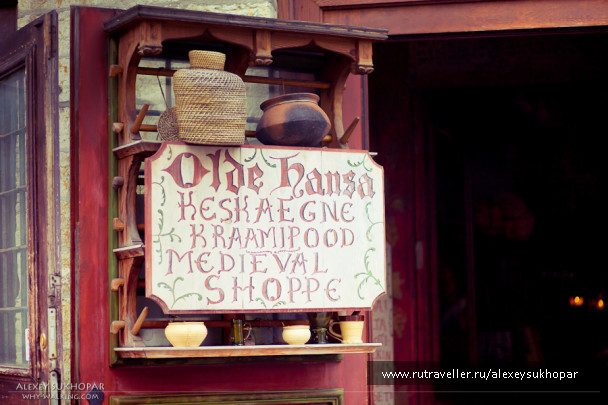 Olde Hansa
KESKAEGNE
KRAAMIPOOD
MEDIEVAL
SHOPPE
www.rutraveller.ru/alexeysukhopar
ALEXEY SUKHOPAR
WHY-WALKING.COM